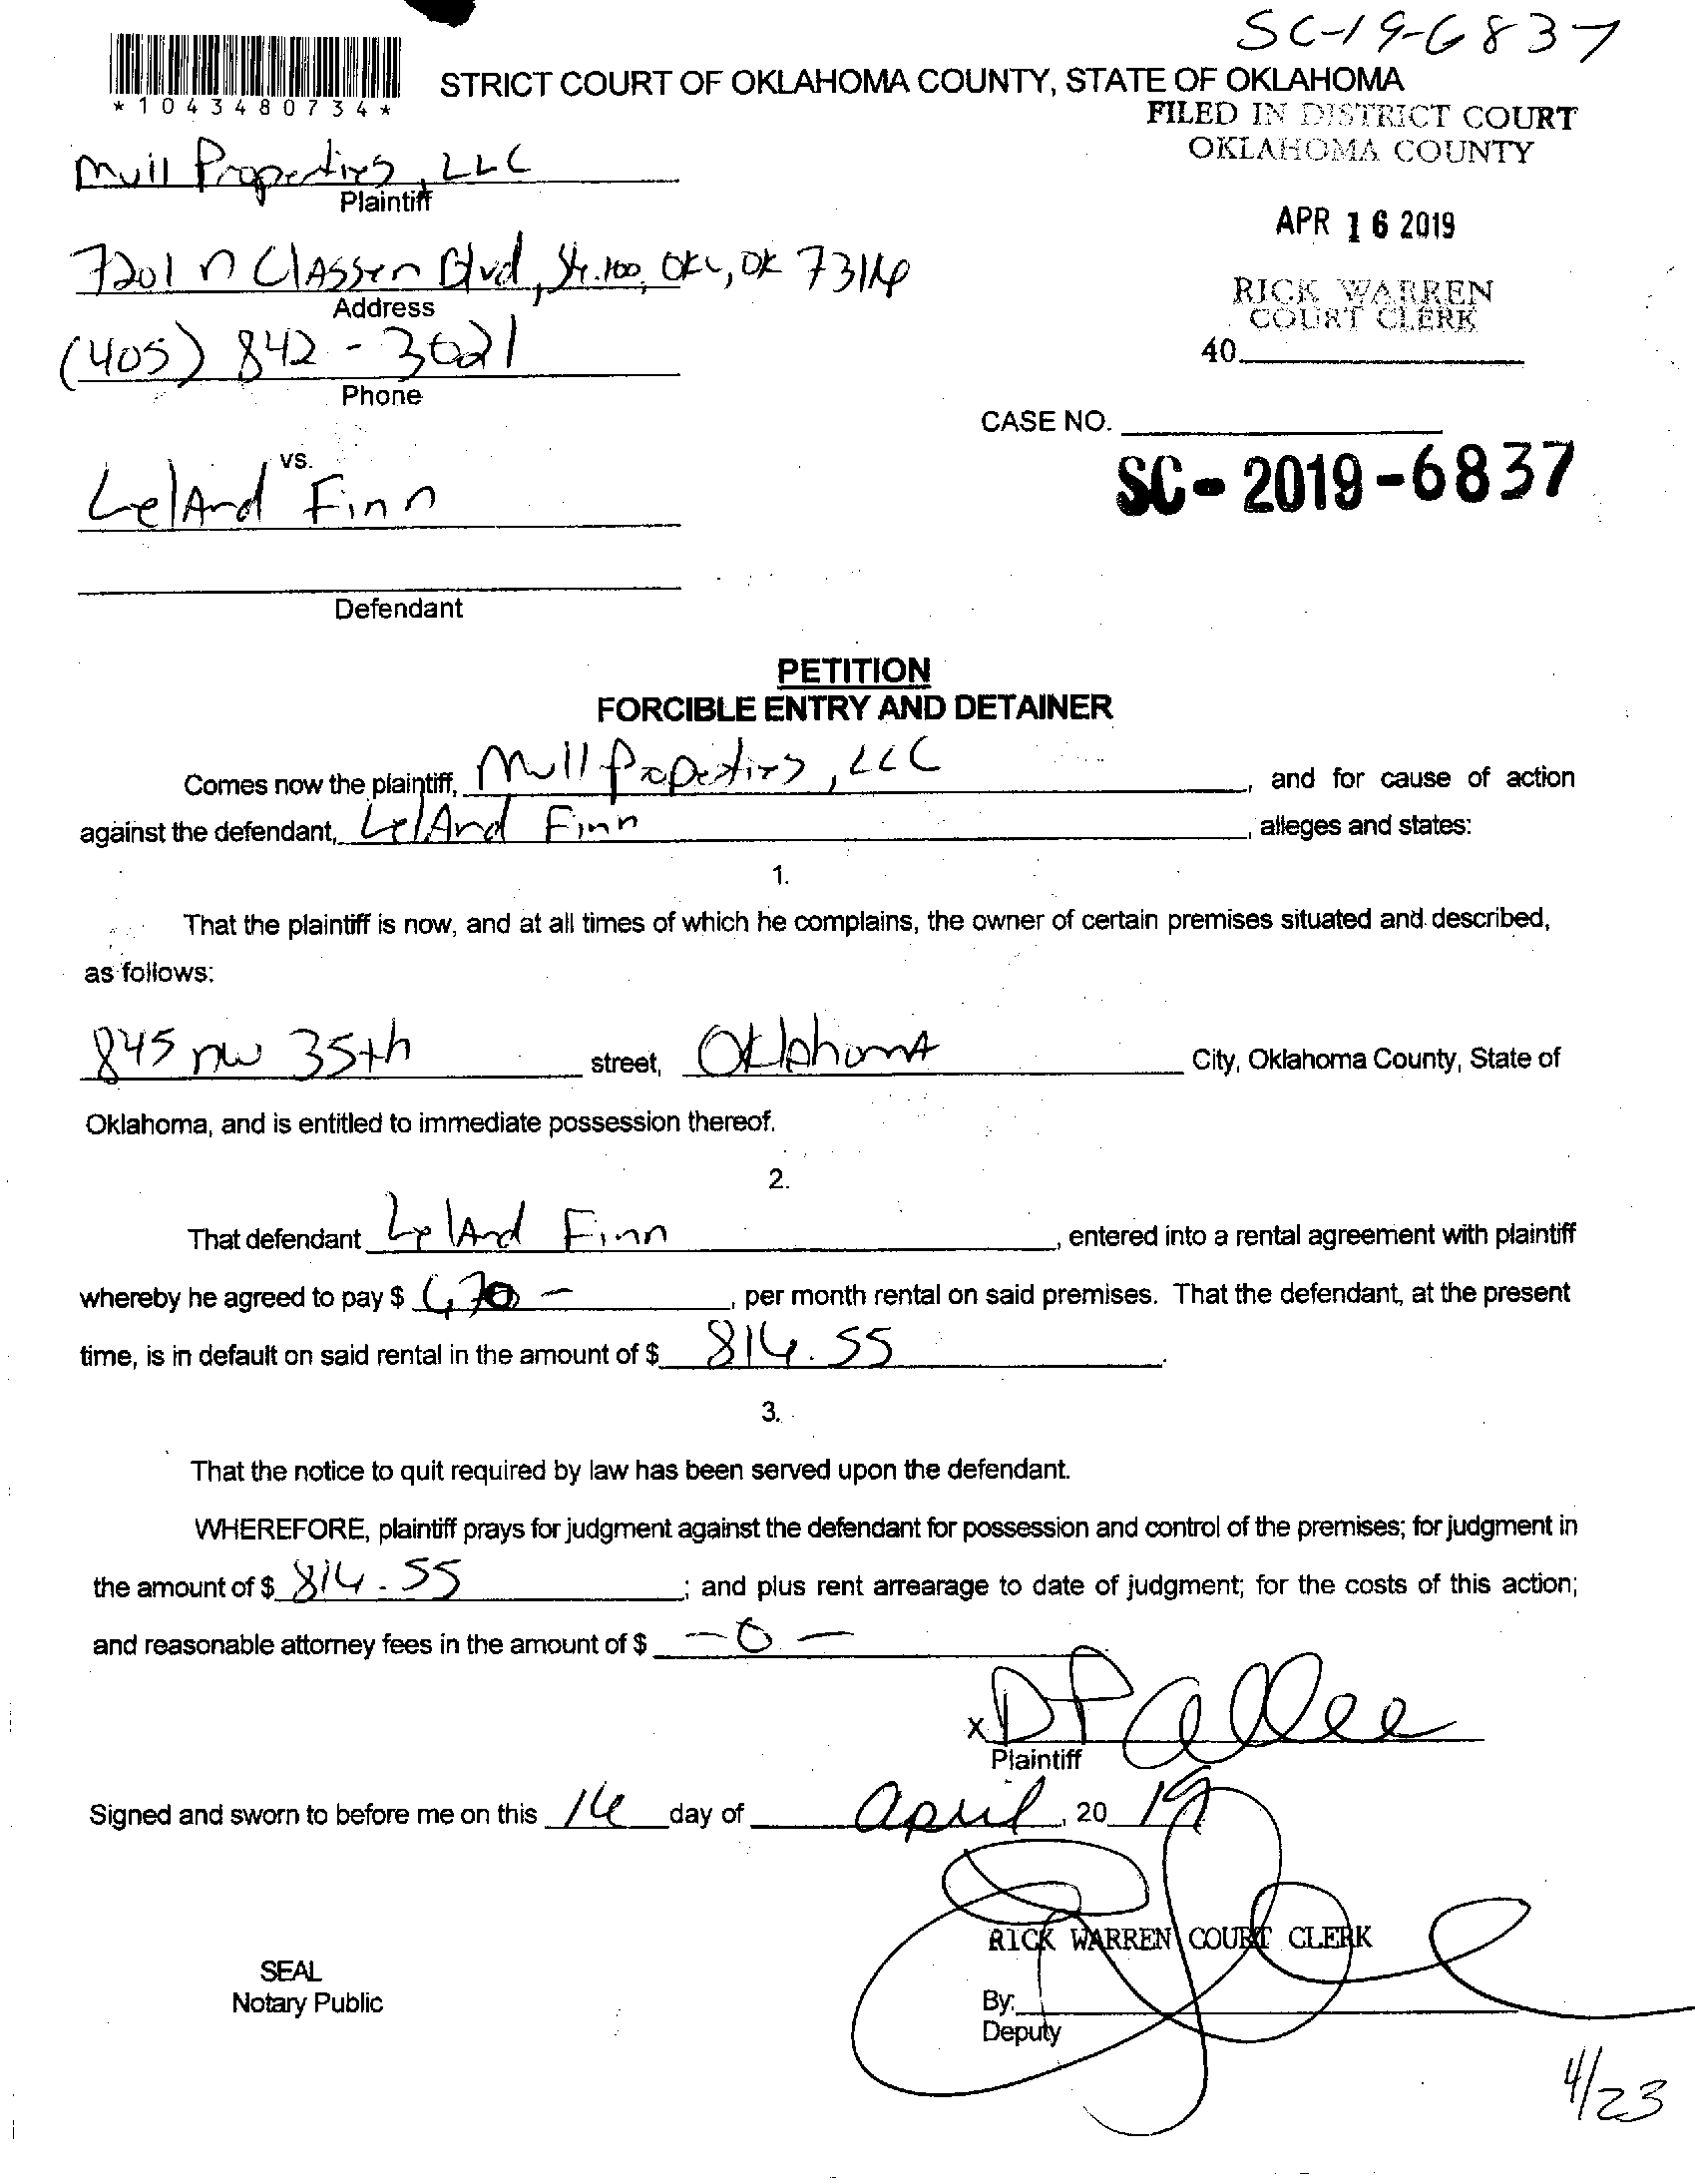 SC-19-6837
STRICT COURT OF OKLAHOMA COUNTY, STATE OF OKLAHOMA
*1043480734*
FILED IN DISTRICT COURT
OKLAHOMA COUNTY
Mull Properties, LLC
Plaintiff
APR 16 2019
7201 N Classen Blvd, Ste. 100, OKC, OK 73116
Address
RICK WARREN
COURT CLERK
(405) 842-3021
40
Phone
CASE NO.
vs.
SC-2019-6837
Leland Finn
Defendant
PETITION
FORCIBLE ENTRY AND DETAINER
Comes now the plaintiff, Mull Properties, LLC, and for cause of action
against the defendant, Leland Finn, alleges and states:
1.
That the plaintiff is now, and at all times of which he complains, the owner of certain premises situated and described,
as follows:
845 NW 35th street, Oklahoma City, Oklahoma County, State of
Oklahoma, and is entitled to immediate possession thereof.
2.
That defendant Leland Finn, entered into a rental agreement with plaintiff
whereby he agreed to pay $ 670 -, per month rental on said premises. That the defendant, at the present
time, is in default on said rental in the amount of $ 816.55.
3.
That the notice to quit required by law has been served upon the defendant.
WHEREFORE, plaintiff prays for judgment against the defendant for possession and control of the premises; for judgment in
the amount of $ 816.55; and plus rent arrearage to date of judgment; for the costs of this action;
and reasonable attorney fees in the amount of $ -0-
x
Plaintiff
Signed and sworn to before me on this 16 day of April, 20 19
RICK WARREN COURT CLERK
SEAL
Notary Public
By:
Deputy
4/23